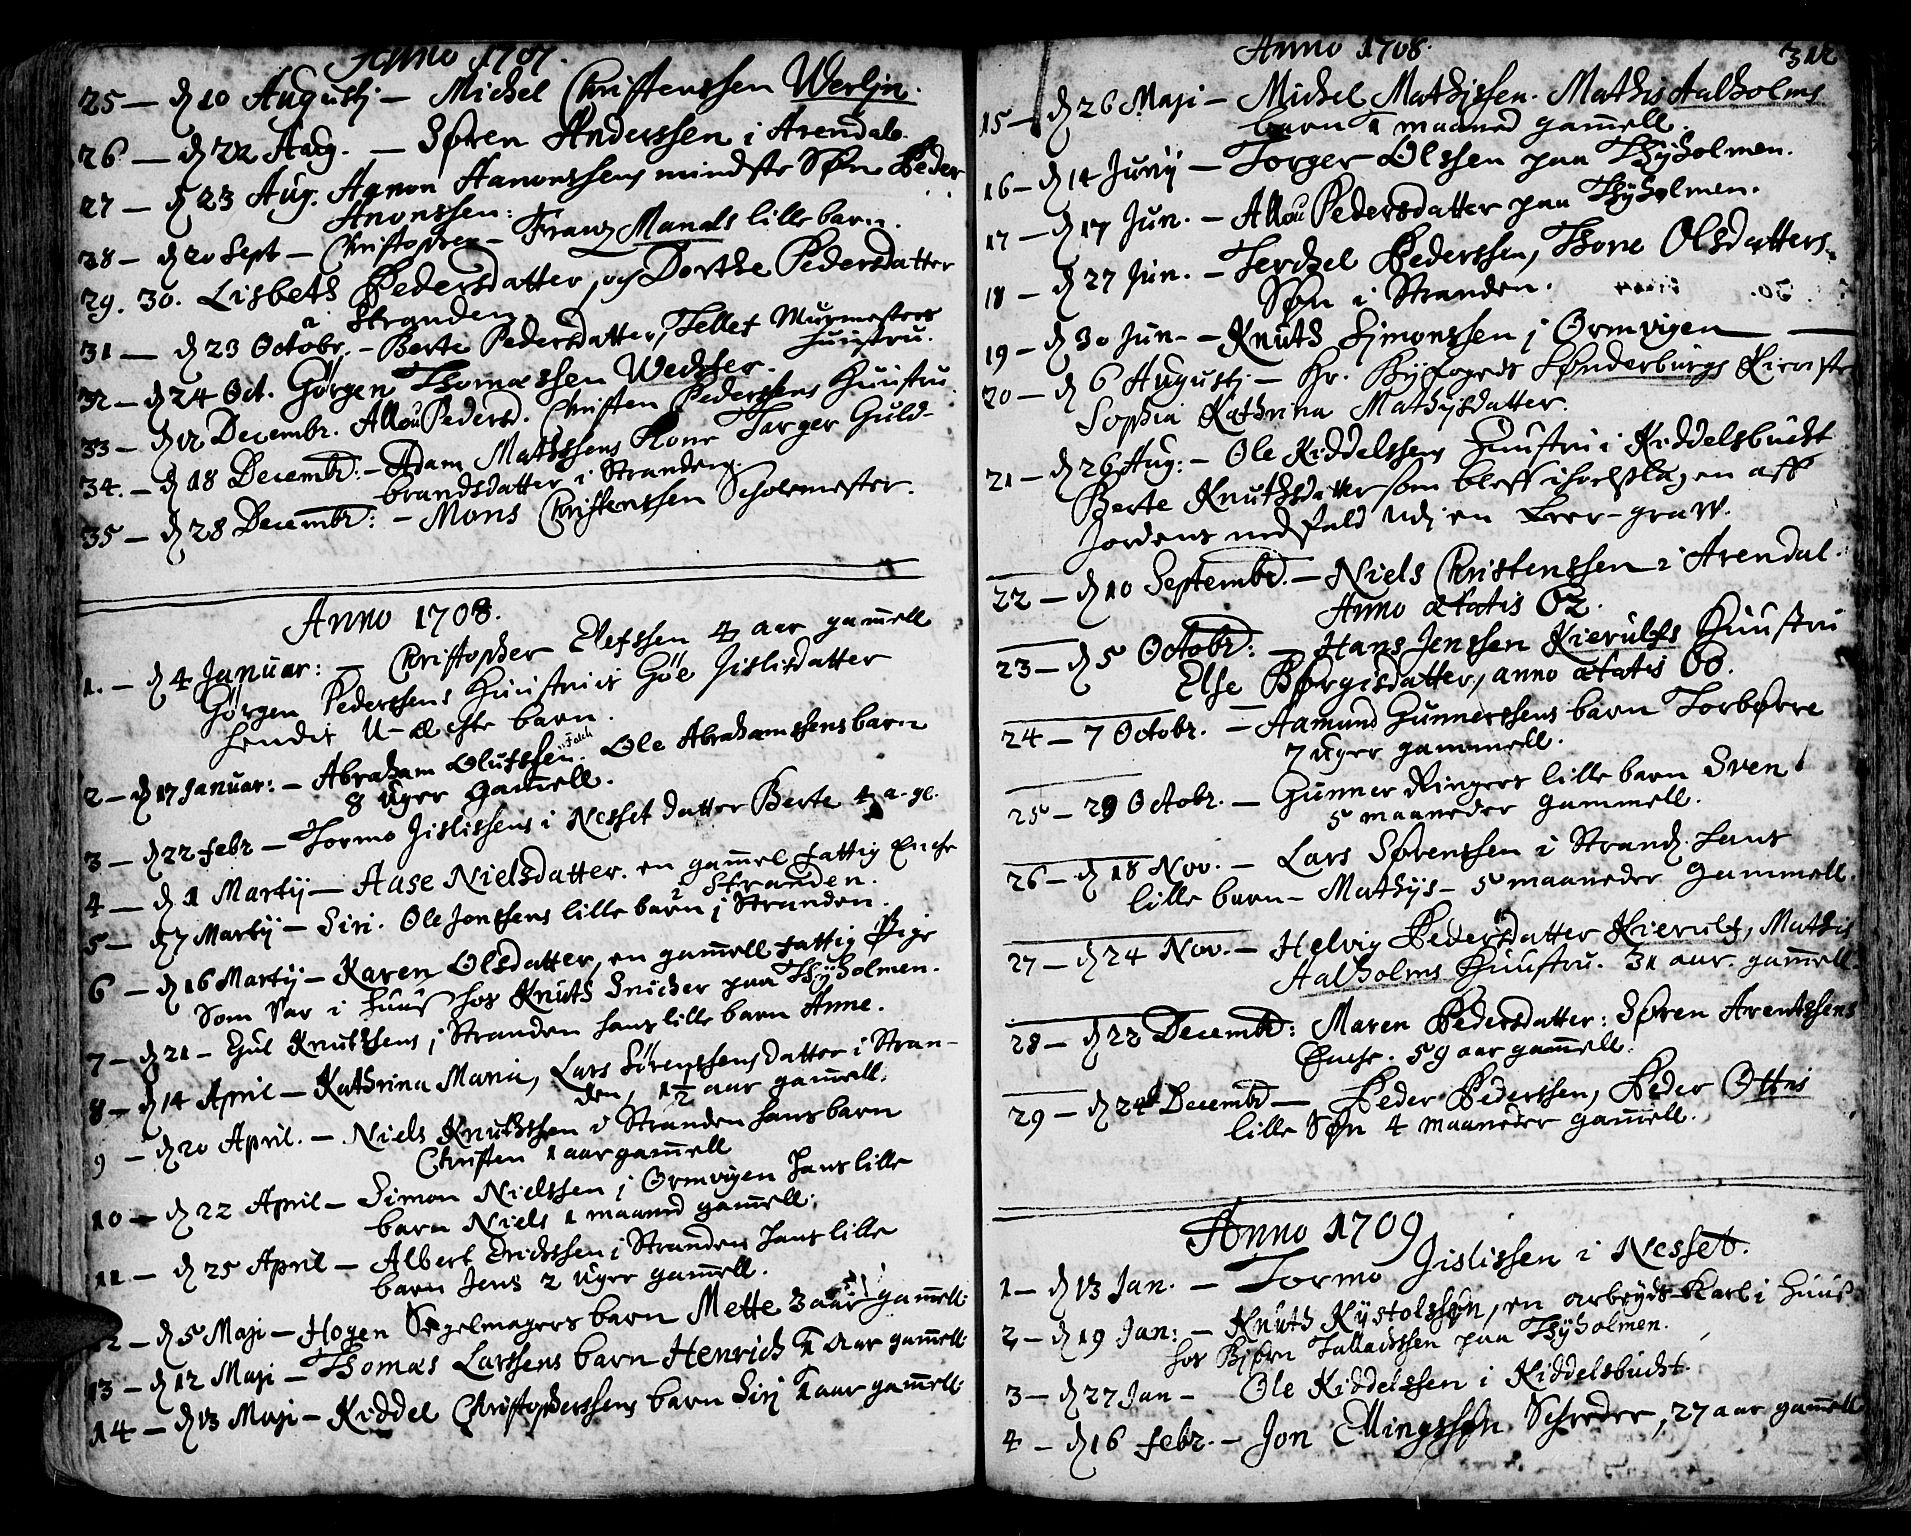 Anno 1707.
25 – d 10 Augustj – Michel Christenssen Werljn.
26 – d 22 Aug. – Søren Anderssen i Arendale.
27 – d 23 Aug. Aanon Aanonssens mindste Søn Peder
Anonssen:
28 – d 20 Sept – Christopher – Franz Mandls lille barn.
29. 30. Lisbeth Pedersdatter, og Dorthe Pedersdatter
i Stranden
31 – d 23 Octobr. – Berte Pedersdatter, Tellef Murmesters
huustru.
32 – d 24 Oct. Gørgen Thomæssen Wechter.
33 – d 12 Decembr. Allou Pedersd. Christen Pederssens Huustru
34. – d 18 Decembr: – Adam Mathssens Kone Targer Guld-
brandsdatter i Stranden.
35 – d 28 Decembr: – Mons Christenssen Scholemester.
Anno 1708.
1. – d 4 Januar: – Christopher Elefssen 4 aar gam̄ell
Gørgen Pederssens Huustrues Göe Jislisdatter
hendis U-ækte barn.
2 – d 17 Januar: – Abraham Olufssen. Falch Ole Abrahamssens barn
8 Uger gam̄ell.
3 – d 22 febr – Tormo Jislissens i Nesset datter Berte 4 a. gl.
4 – d 1 Martij – Aase Nielsdatter. en gam̄el fattig Enche
i Stranden.
5 – d 7 Martij – Siri. Ole Jonssens lille barn j Stranden.
6 – d 16 Martij – Karen Olsdatter, en gam̄ell fattig Pige
Som var i huus hos Knuth Snicher paa Thyholmen.
7 – d 21 – Gul Knuthssens j Stranden hans lille barn Anne.
8 – d 14 April – Kathrina Maria, Lars Sørenssens datter i Stran-
den, 1½ aar gam̄ell.
9 – d 20 April. – Niels Knuthssen i Stranden hans barn
Christen 1 aar gam̄ell
10 – d 22 April – Simon Nielssen j Ormvigen hans lille
barn Niels 1 maaned gam̄ell.
11 – d 25 April – Albert Erichssen i Stranden hans lille
barn Jens 2 Uger gam̄ell.
12 – d 5 Maji – Hogen Segelmagers barn Mette 3 aar gam̄ell.
13 – d 12 Maji – Thomas Larssens barn Henrich 1 aar gam̄ell
14 – d 13 Maji – Kiddel Christopherssens barn Sirj 1 aar gam̄ell.
Anno 1708.
312
15 – d 26 Maji – Michel Mathissen. Mathis Aalholms
barn 1 maaned gam̄ell.
16 – d 14 Junij – Torger Olssen paa Thyholmen.
17 – d 17 Jun. – Allou Pedersdatter paa Thyholmen.
18 – d 27 Jun. – Terchel Pederssen, Thone Olsdatters
Søn i Stranden.
19 – d 30 Jun. – Knuth Sjmonssen j Ormvigen
20 – d 6 Augustj – Hr. Byfogeds Sønderburgs Kieriste
Sophia Kathrina Mathysdatter.
21 – d 26 Aug: – Ole Kiddelssens Huustru i Kiddelsbucht
Berte Knuthsdatter som bleff ihielslagen aff
Jordens nedfald udj en Leer-graw.
22 – d 10 Septembr. – Niels Christenssen i Arendal.
Anno ætatis 62.
23 – d 5 Octobr: – Hans Jenssen Kierulfs Huustru
Else Børgisdatter, anno ætatis 60.
24 – 7 Octobr. – Aamund Gunnerssens barn Torbørre
7 uger gammell.
25 – 29 Octobr. – Gunner Ringers lille barn Sven
5 maaneder gammell.
26 – d 18 Nov. – Lars Sørenssen i Strand. hans
lille barn – Mathys – 5 maaneder gammell.
27 – d 24 Nov. – Helvig Pedersdatter Kierulf, Mathis
Aalholms Huustru. 31 aar. gam̄ell.
28 – d 22 Decembr: Maren Pedersdatter: Søren Arentssens
Enche. 59 aar gam̄ell.
29 – d 24 Decembr – Peder Pederssen, Peder Ottis
lille Søn 4 maaneder gam̄ell.
Anno 1709
1 – d 13 Jan. – Tormo Jislissen i Nesset.
2 – d 19 Jan: – Knuth Kystolssøn, en arbeyds-Karl i huus
hos Bjørn Tallachssen paa Thyholmen.
3 – d 27 Jan – Ole Kiddelssen i Kiddelsbucht.
4 – d 16 febr. – Jon Ellingssøn Schreder, 27 aar gam̄ell